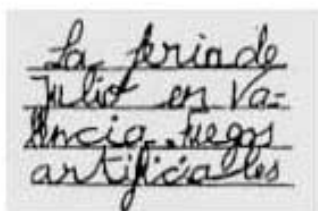 La feria de
Julio en Va=
lencia. Fuegos
artificiales